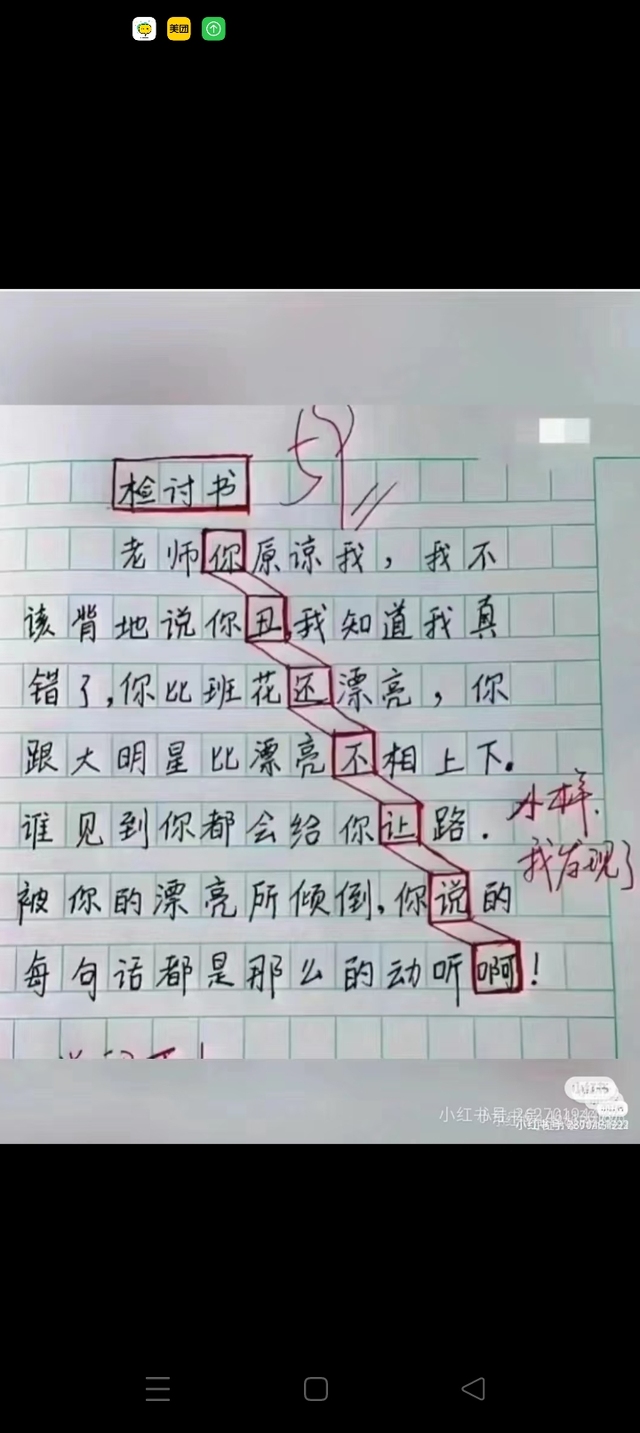 美团
59
检讨书
老师你原谅我，我不
该背地说你丑，我知道我真
错了，你比班花还漂亮，你
跟大明星比漂亮不相上下。
谁见到你都会给你让路．
小样．
我发现了
被你的漂亮所倾倒，你说的
每句话都是那么的动听啊！
小红书号